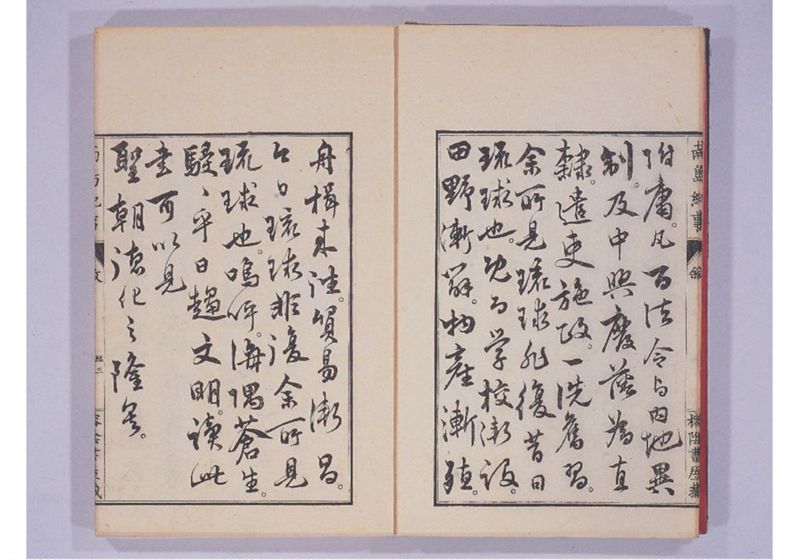 南島紀事
附庸。凡百法令与内地異
制。及中興廢藩為直
隷。遣吏施政。一洗舊習。
余所見琉球非復昔日
琉球也。既而学校漸設。
田野漸辟。物產漸殖。
舟楫来往。貿易漸昌。
今日琉球非復余所見
琉球也。嗚呼。海隅蒼生。
駸〻乎日趨文明。讀此
書可以見
聖朝德化之隆矣。